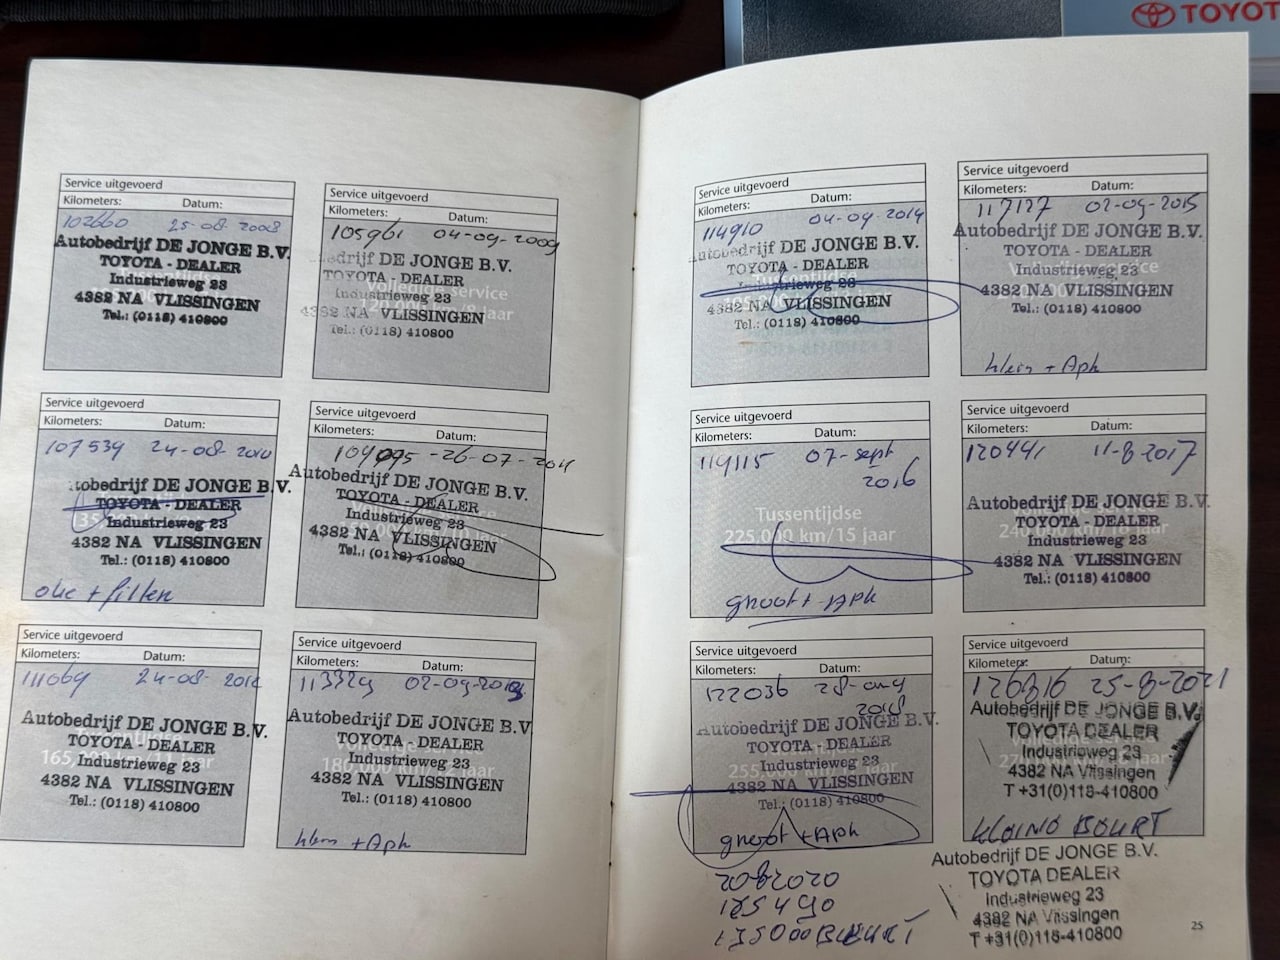 TOYOT
Service uitgevoerd
Kilometers: Datum:
102660 25-08-2008
Autobedrijf DE JONGE B.V.
TOYOTA - DEALER
Industrieweg 23
4382 NA VLISSINGEN
Tel.: (0118) 410800
Service uitgevoerd
Kilometers: Datum:
105961 04-09-2009
Autobedrijf DE JONGE B.V.
TOYOTA - DEALER
Industrieweg 23
4382 NA VLISSINGEN
Tel.: (0118) 410800
Volledige service
Service uitgevoerd
Kilometers: Datum:
107539 24-08-2010
tobedrijf DE JONGE B.V.
TOYOTA - DEALER
Industrieweg 23
4382 NA VLISSINGEN
Tel.: (0118) 410800
olie + filter
Service uitgevoerd
Kilometers: Datum:
26-07-2011
Autobedrijf DE JONGE B.V.
TOYOTA - DEALER
Industrieweg 23
4382 NA VLISSINGEN
Tel.: (0118) 410800
Service uitgevoerd
Kilometers: Datum:
111069 24-08-
Autobedrijf DE JONGE B.V.
TOYOTA - DEALER
Industrieweg 23
4382 NA VLISSINGEN
Tel.: (0118) 410800
Service uitgevoerd
Kilometers: Datum:
113329 02-09-
Autobedrijf DE JONGE B.V.
TOYOTA - DEALER
Industrieweg 23
4382 NA VLISSINGEN
Tel.: (0118) 410800
klein + Aph
Service uitgevoerd
Kilometers: Datum:
114910 04-09-2014
Autobedrijf DE JONGE B.V.
TOYOTA - DEALER
Industrieweg 23
4382 NA VLISSINGEN
Tel.: (0118) 410800
Service uitgevoerd
Kilometers: Datum:
117127 02-09-2015
Autobedrijf DE JONGE B.V.
TOYOTA - DEALER
Industrieweg 23
4382 NA VLISSINGEN
Tel.: (0118) 410800
klein + Aph
Service uitgevoerd
Kilometers: Datum:
119115 07-sept
2016
Tussentijdse
225.000 km/15 jaar
groot + Aph
Service uitgevoerd
Kilometers: Datum:
120441 11-8-2017
Autobedrijf DE JONGE B.V.
TOYOTA - DEALER
Industrieweg 23
4382 NA VLISSINGEN
Tel.: (0118) 410800
Service uitgevoerd
Kilometers: Datum:
122036 28-aug
2018
Autobedrijf DE JONGE B.V.
TOYOTA - DEALER
Industrieweg 23
4382 NA VLISSINGEN
Tel.: (0118) 410800
groot + Aph
20-8-2020
125490
Service uitgevoerd
Kilometers: Datum:
126816 25-8-2021
Autobedrijf DE JONGE B.V.
TOYOTA DEALER
Industrieweg 23
4382 NA Vlissingen
T +31(0)118-410800
KLEINE BEURT
Autobedrijf DE JONGE B.V.
TOYOTA DEALER
Industrieweg 23
4382 NA Vlissingen
T +31(0)118-410800
25